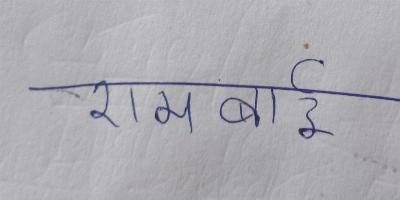 राम बाई